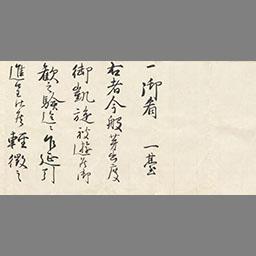 一御肴　一臺
右者今般芽出度
御凱旋被遊候御
歓之験迄ニ乍延引
進呈仕候軽微之